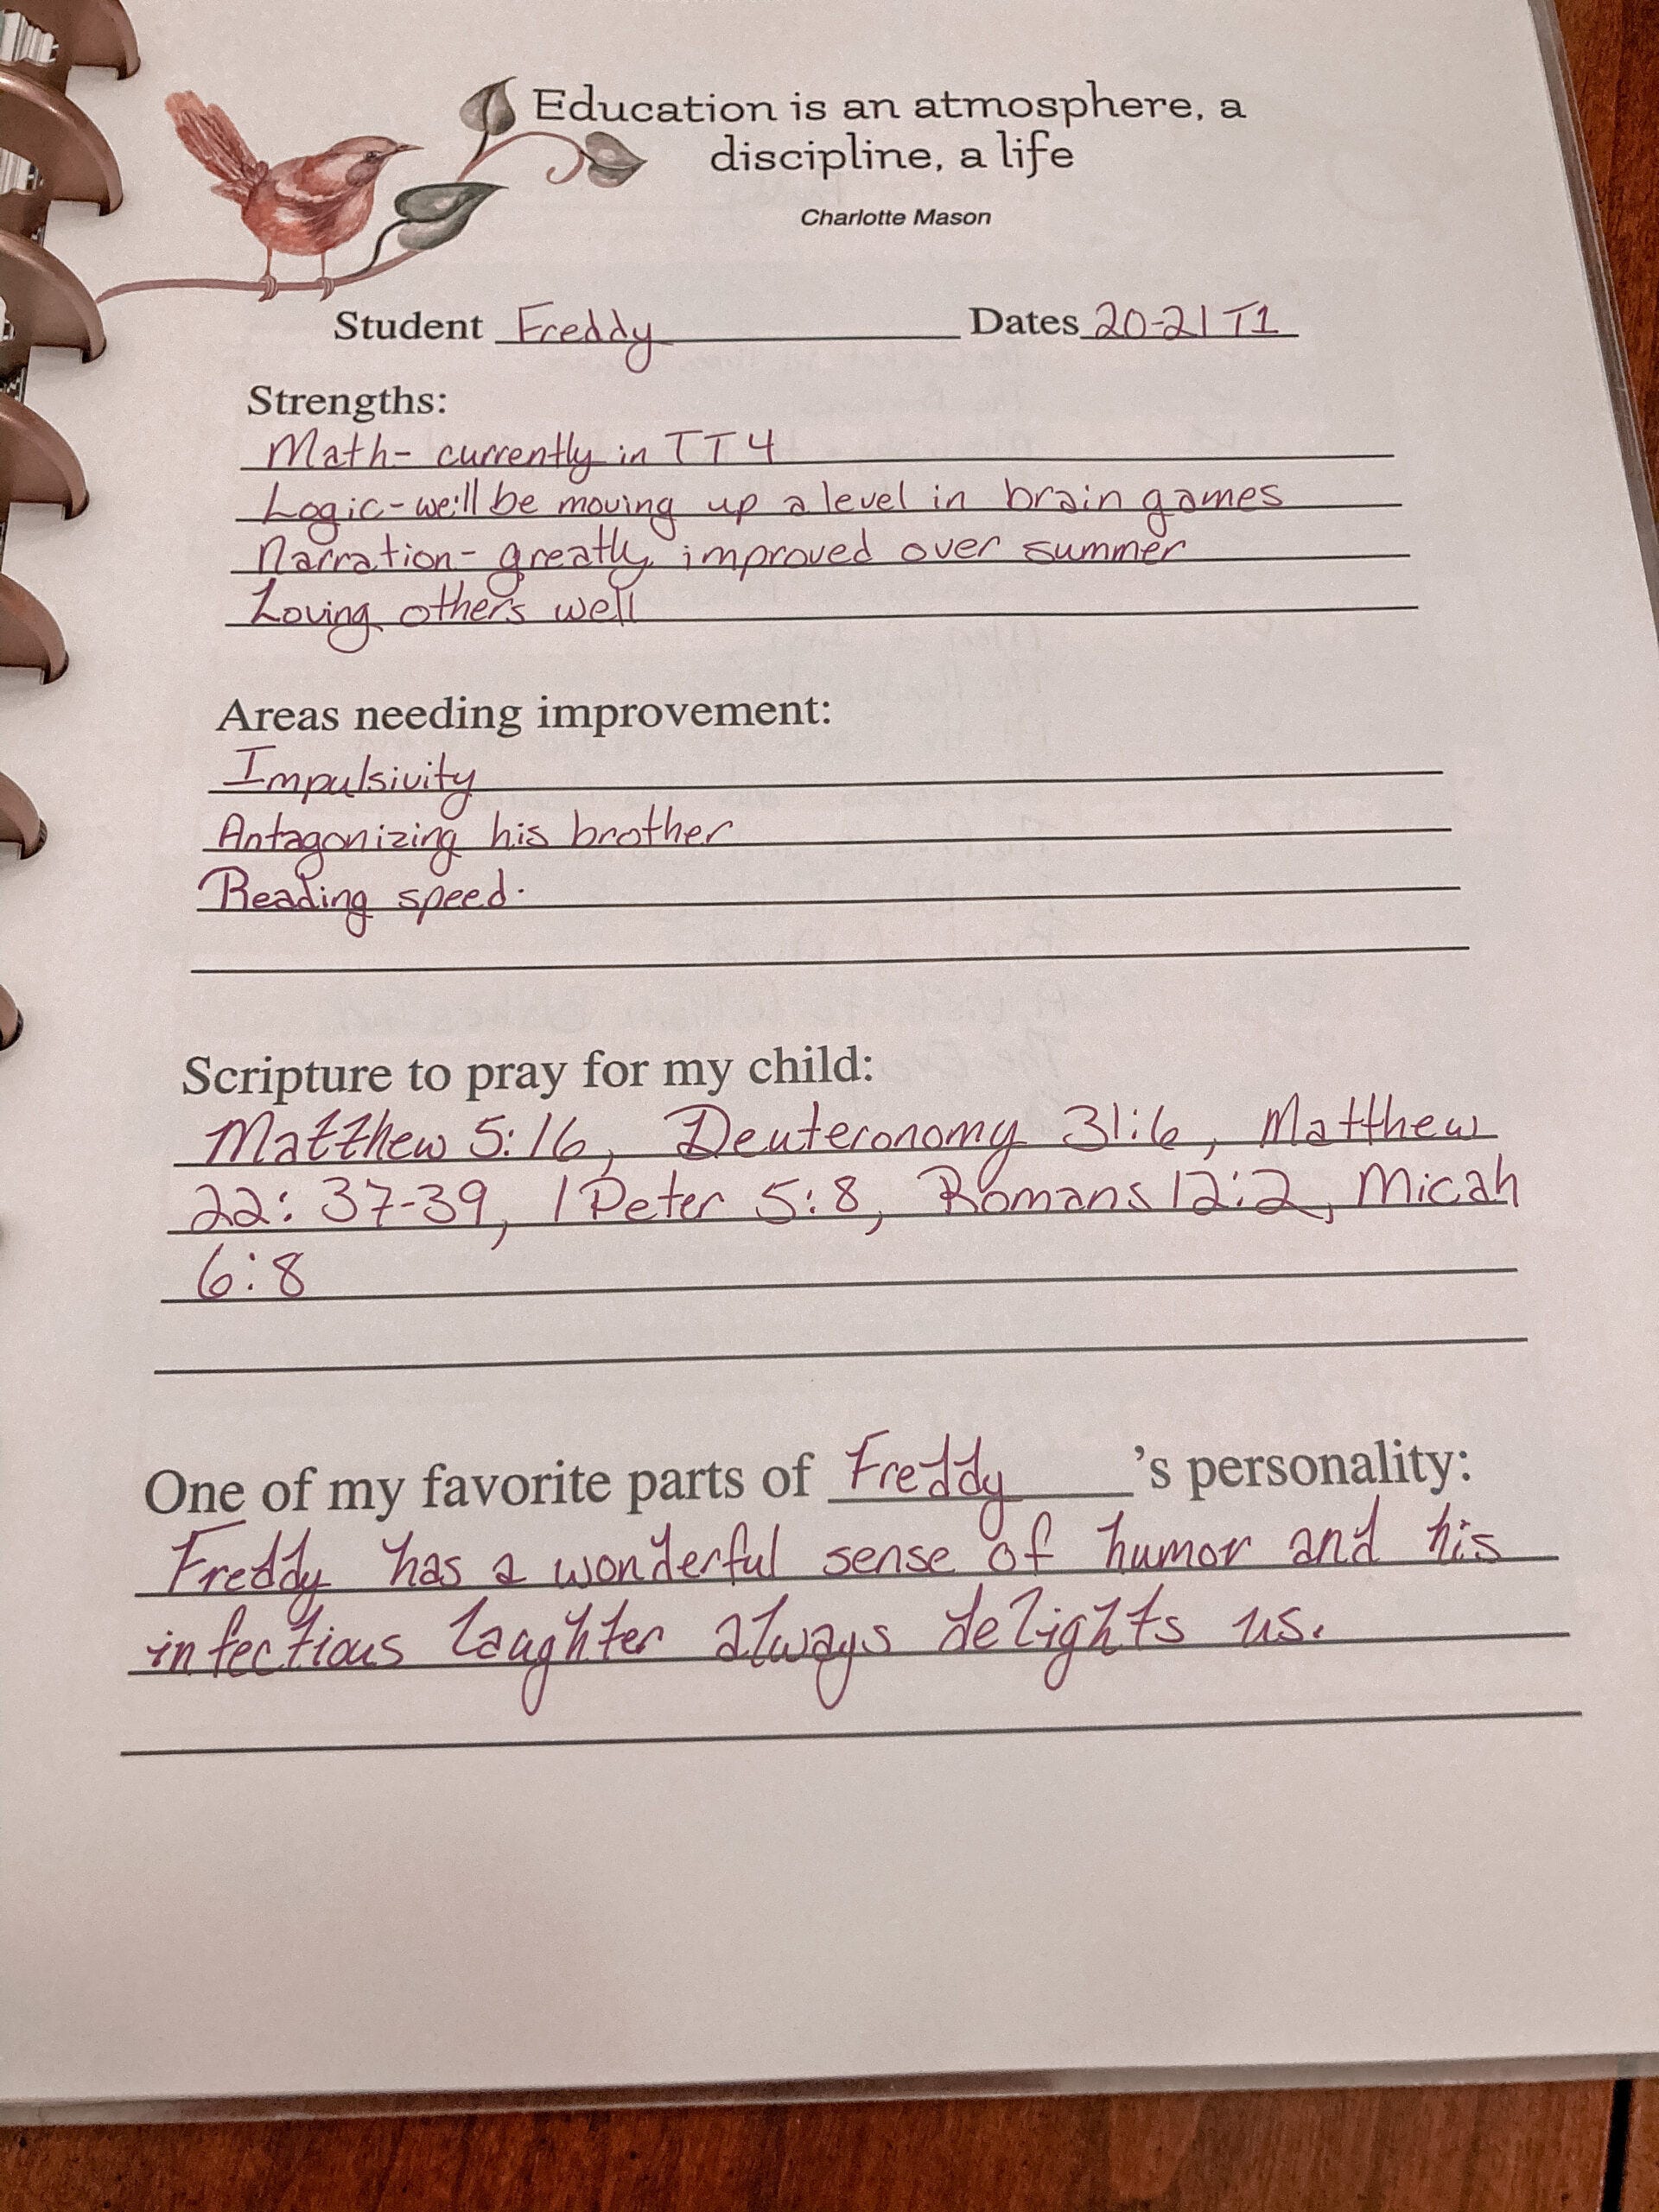 Education is an atmosphere, a
discipline, a life
Charlotte Mason
Student Freddy Dates 20-21 T1
Strengths:
Math- currently in TT4
Logic- we'll be moving up a level in brain games
Narration- greatly improved over summer
Loving others well
Areas needing improvement:
Impulsivity
Antagonizing his brother
Reading speed.
Scripture to pray for my child:
Matthew 5:16, Deuteronomy 31:6, Matthew
22:37-39, 1 Peter 5:8, Romans 12:2, Micah
6:8
One of my favorite parts of Freddy 's personality:
Freddy has a wonderful sense of humor and his
infectious laughter always delights us.